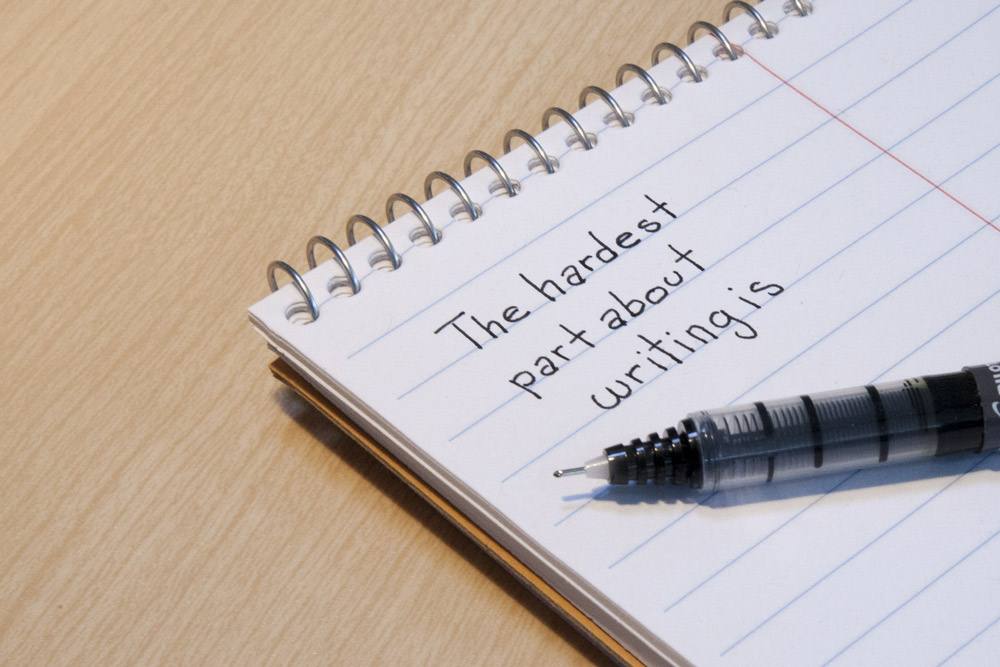 The hardest
part about
writing is